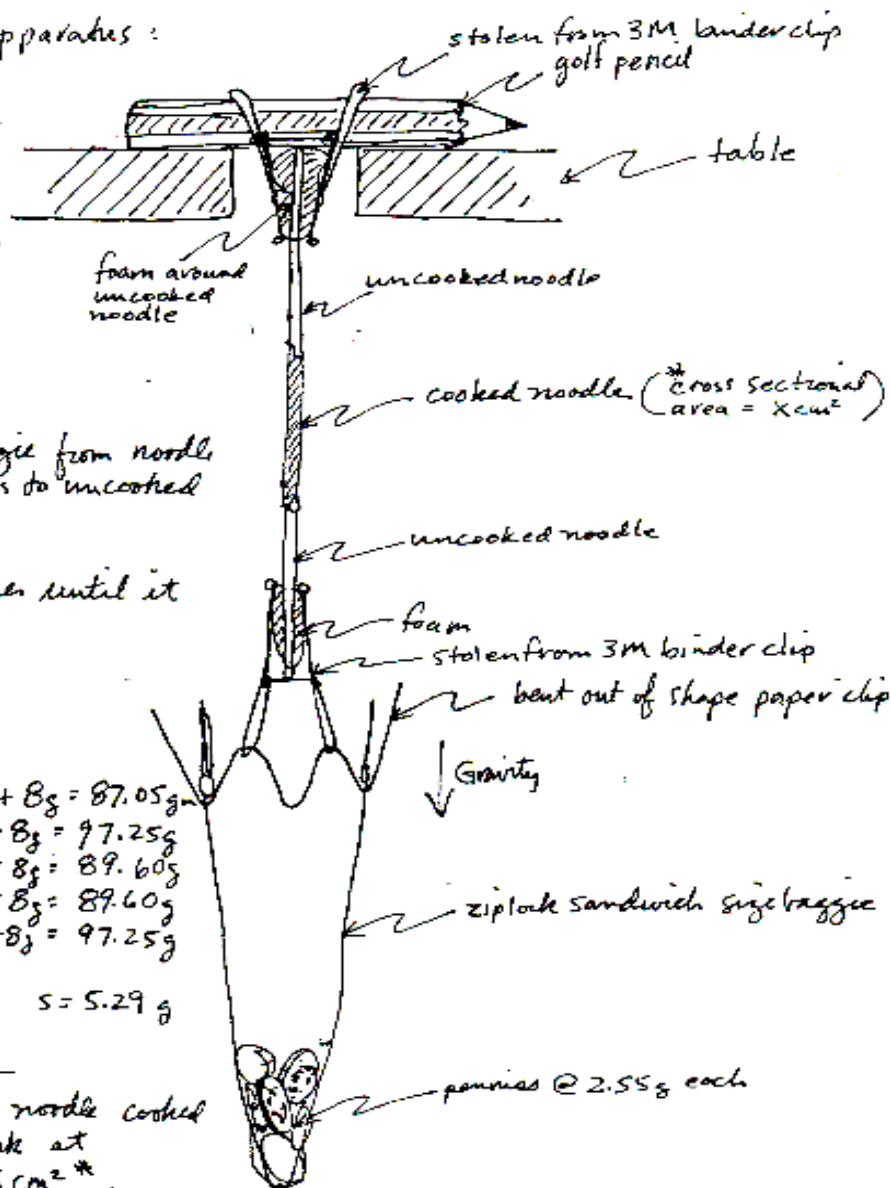 apparatus :
stolen from 3M binder clip
golf pencil
table
foam around
uncooked
noodle
uncooked noodle
cooked noodle (*cross sectional
area = x cm²)
from noodle
to uncooked
uncooked noodle
until it
foam
stolen from 3M binder clip
bent out of shape paper clip
Gravity
+ 8g = 87.05gm
8g = 97.25g
8g = 89.60g
8g = 89.60g
8g = 97.25g
ziplock sandwich size baggie
s = 5.29 g
pennies @ 2.55g each
noodle cooked
at
cm² *